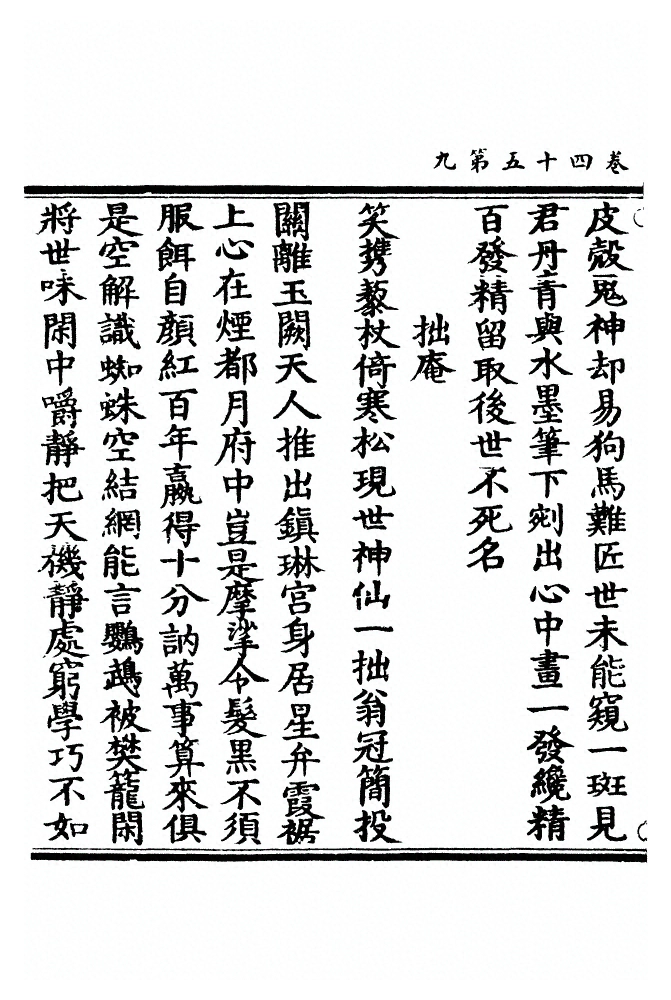 卷四十五第九
皮殼鬼神却易狗馬難匠世未能窺一斑見
君丹青與水墨筆下剜出心中畫一發纔精
百發精留取後世不死名
拙庵
笑携藜杖倚寒松現世神仙一拙翁冠簡投
關離玉闕天人推出鎮琳宮身居星弁霞裾
上心在煙都月府中豈是摩挲令髮黑不須
服餌自顏紅百年贏得十分訥萬事算來俱
是空解識蜘蛛空結網能言鸚鵡被樊籠閑
將世味閑中嚼靜把天機靜處窮學巧不如